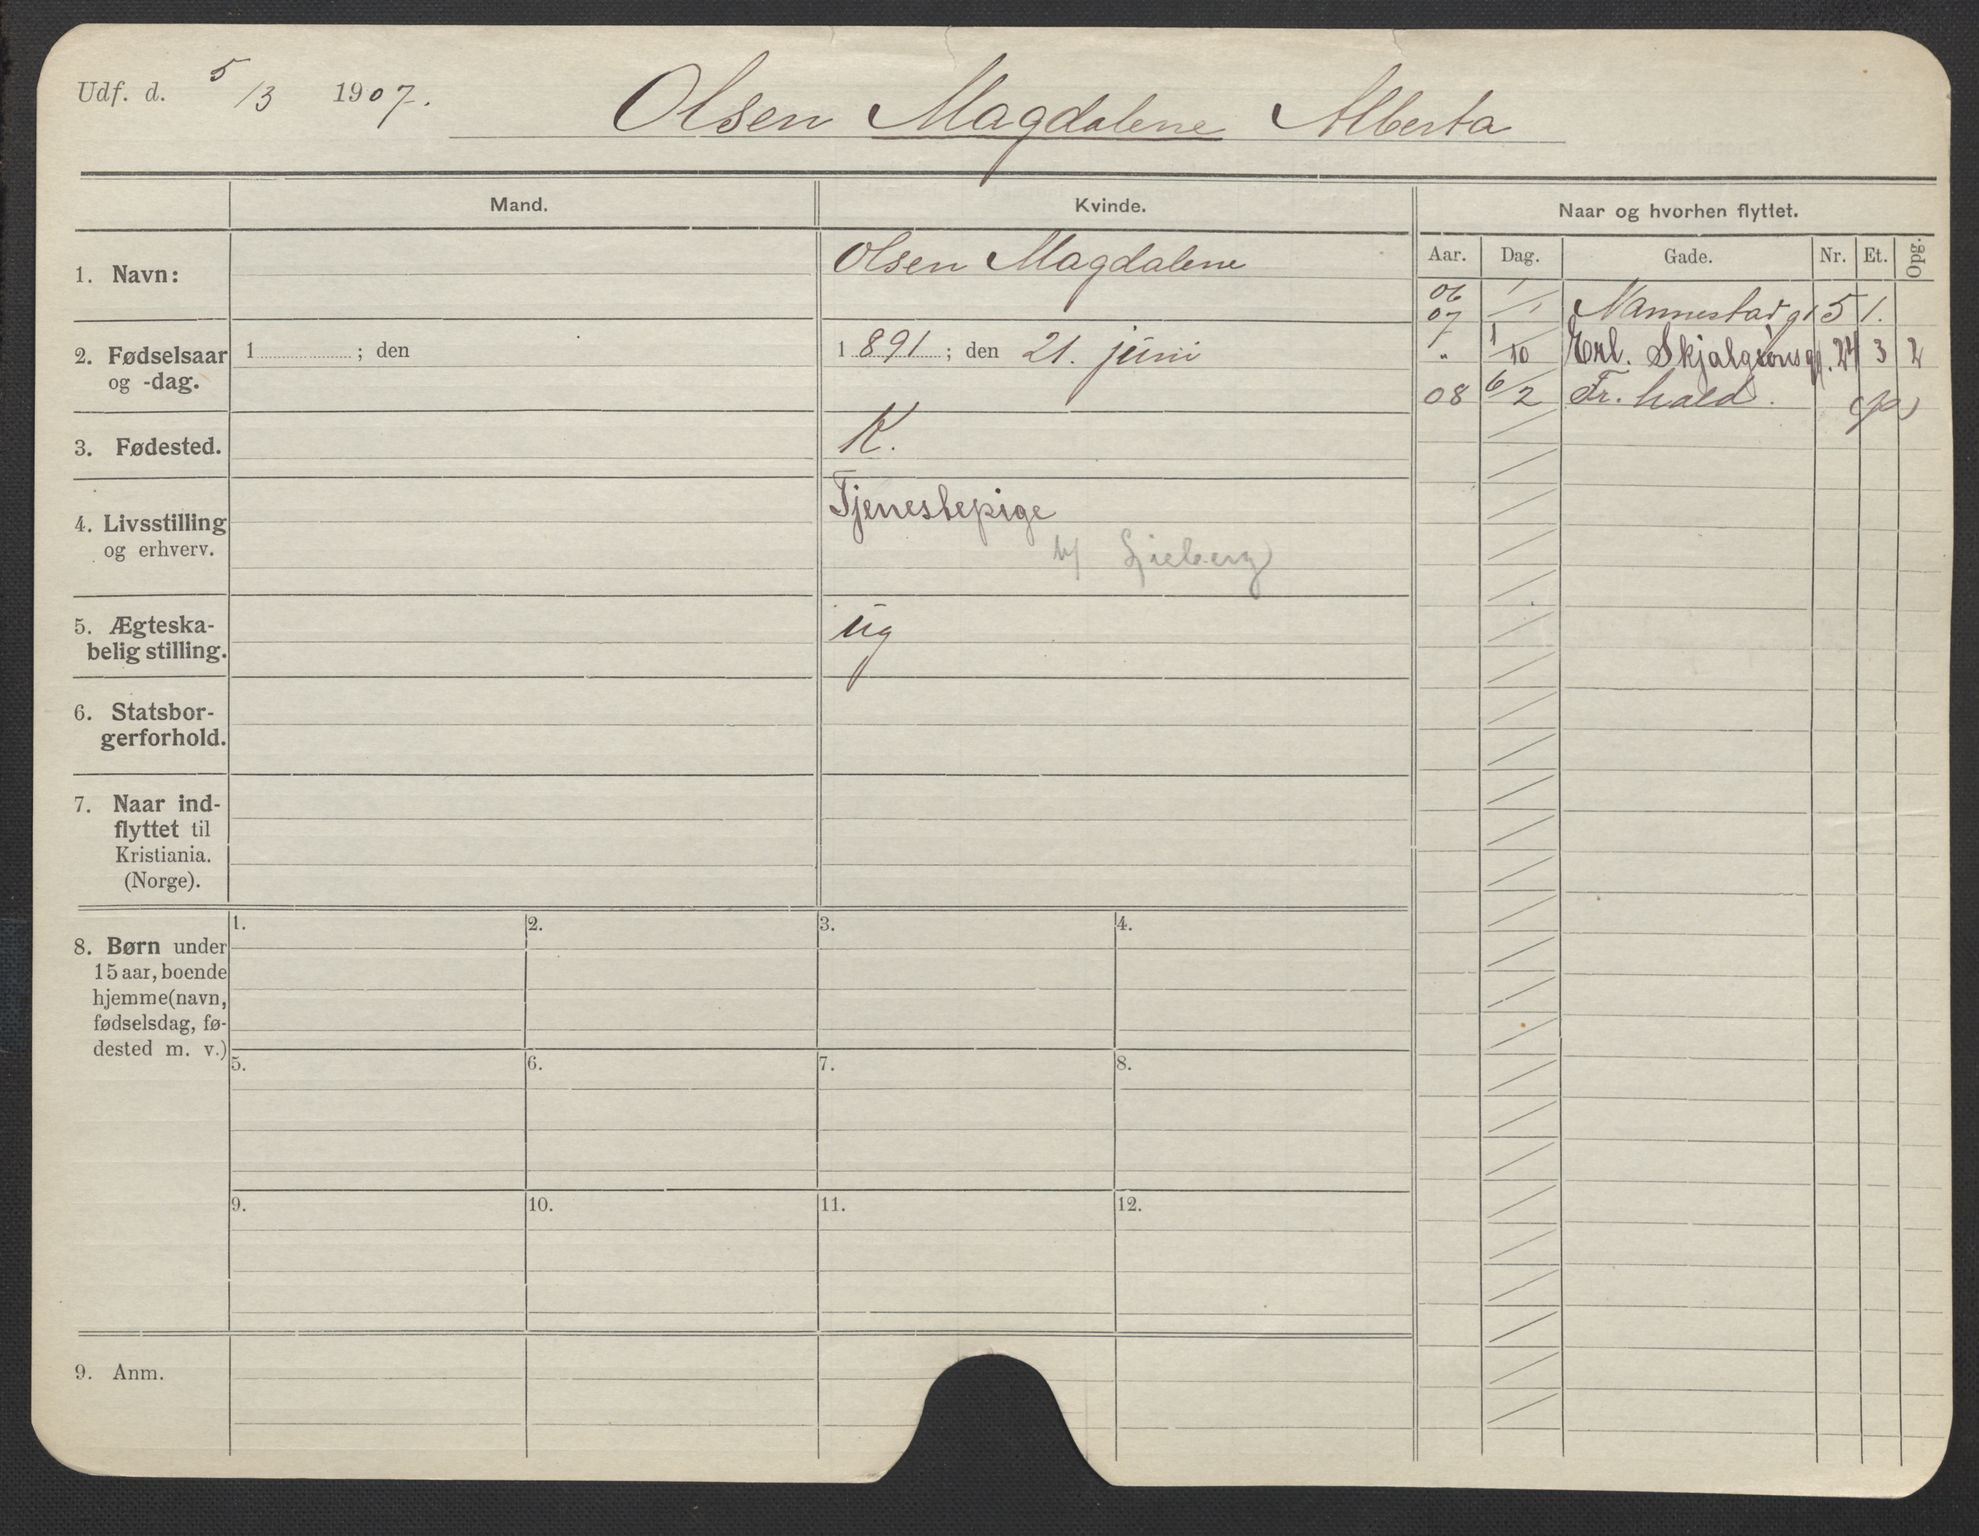 Udf. d. 5/3 1907.
Olsen Magdalene Alberta
Mand.
Kvinde.
Naar og hvorhen flyttet.
Aar. Dag. Gade. Nr. Et. Opg.
1. Navn:
Olsen Magdalene
2. Fødselsaar
og -dag.
1 ; den
1 891 ; den 21. juni
3. Fødested.
K.
4. Livsstilling
og erhverv.
Tjenestepige
5. Ægteska-
belig stilling.
ug
6. Statsbor-
gerforhold.
7. Naar ind-
flyttet til
Kristiania.
(Norge).
8. Børn under
15 aar, boende
hjemme (navn,
fødselsdag, fø-
dested m. v.)
1. 2. 3. 4.
5. 6. 7. 8.
9. 10. 11. 12.
9. Anm.
06
07 1/1 Mannestadgt 5 1.
" 1/10 Erl. Skjalgsonsgt. 24 3 2
08 6/2 Fr. hald.